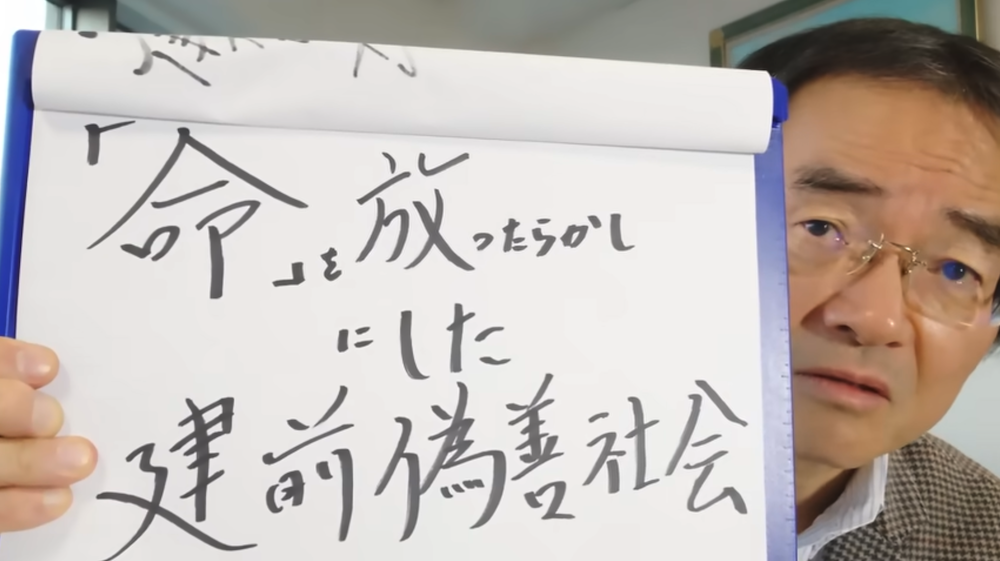 「命」を放ったらかし
にした
建前偽善社会